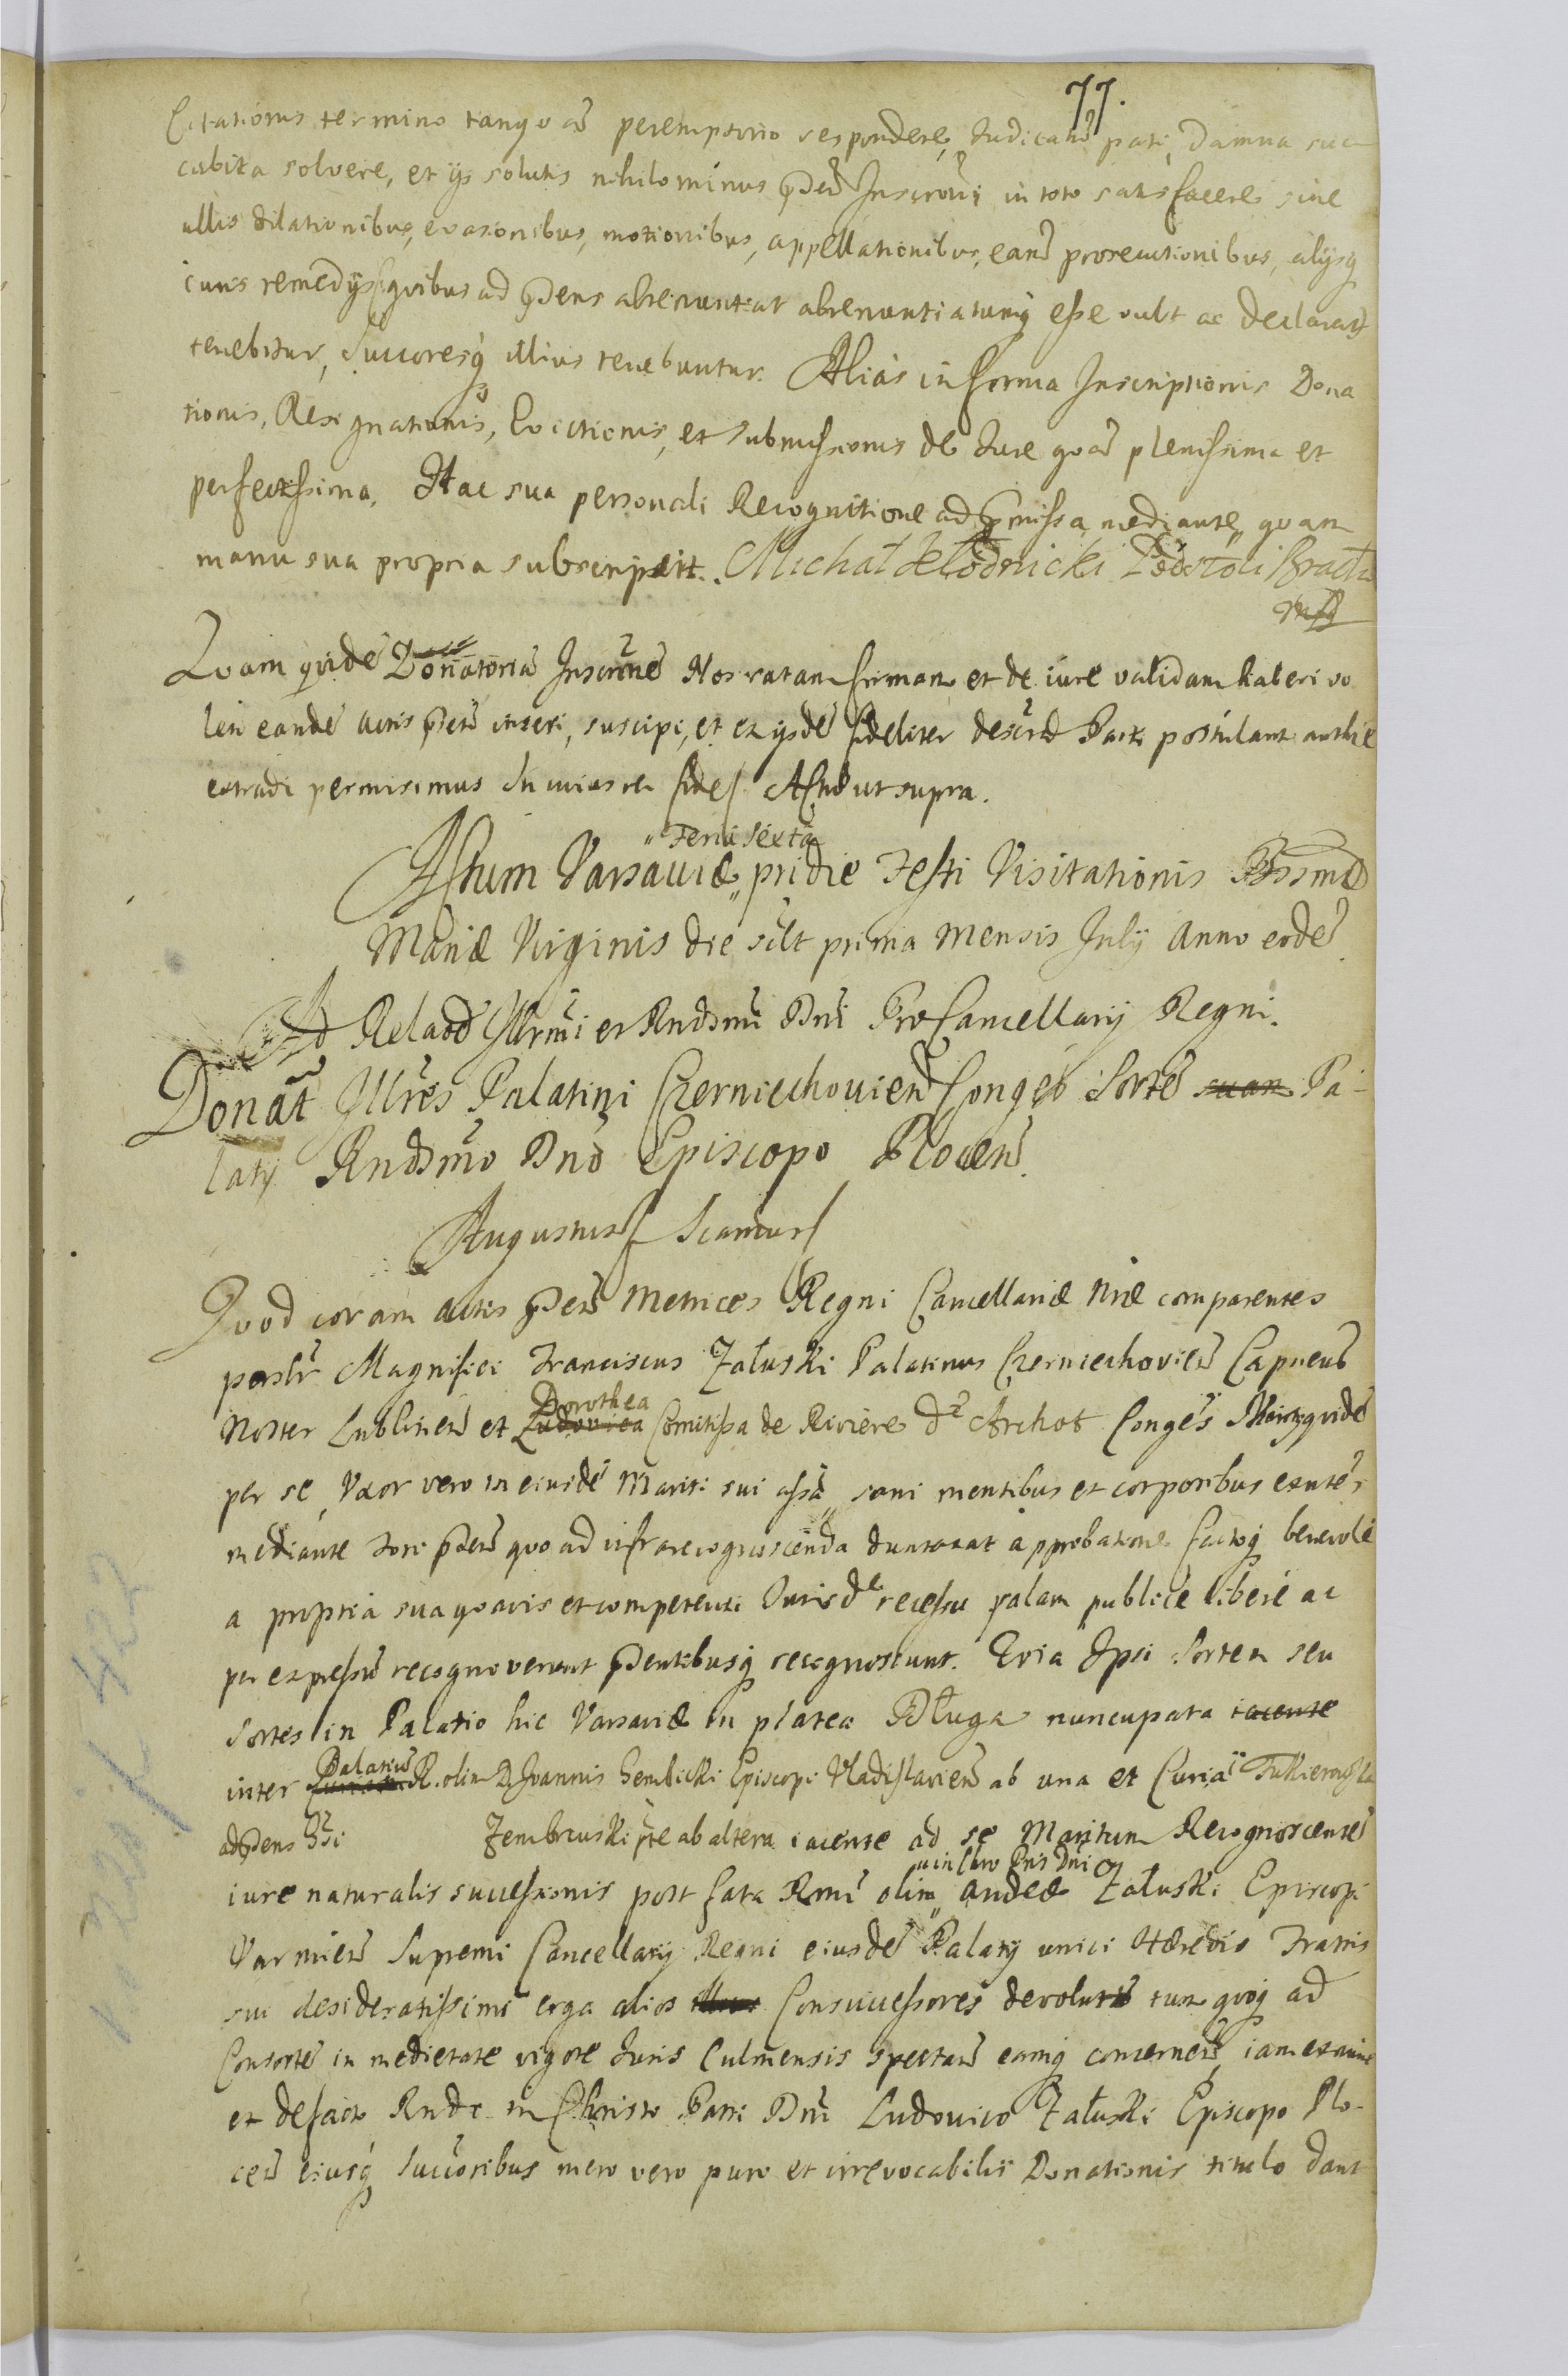 77.
Citationis termino tanqua peremptorio respondere, Judicatu pati, damna suc
cubita solvere, et ijs solutis nihilominus pnti Inscroni in toto satisfacere sine
ullis dilationibus, evasionibus, motionibus, appellationibus, earu prosecutionibus, alijsq
iuris remedijs, quibus ad pdens abrenuntiat abrenuntiatumq esse vult ac declarat
tenebitur, Succoresq illius tenebuntur. Alias in forma Inscriptionis Dona
tionis, Resignationis, Evictionis, et Submissionis de Jure qua plenissima et
perfectissima. Hac sua personali Recognitione ad pmissa mediante, quam
manu sua propria subscripsit. Michał Kłodnicki Podstoli Bracła
mp
Quam quide Donatoria Inscrone Nos ratam firmam et de iure validam haberi vo
len eande actis pntu inseri, suscipi, et ex ijsde fideliter descrid Parti postulant authe
extradi permisimus In cuius rei fide Actu ut supra.
Feria Sexta
Actum Varsaviæ pridie Festi Visitationis Bssmæ
Mariæ Virginis die silt prima mensis July Anno eode
Ad Relaoe Illrmi et Rndsmi Dni ProCancellarij Regni.
Donat Illres Palatini Czerniechovien Conges Sorte suam Pa-
latij Rndsmo Dno Episcopo Plocen.
Augustus Scandus
Quod coram actis pntu Metrices Regni Cancellariæ Nræ comparentes
persltr Magnifici Franciscus Załuski Palatinus Czerniechovien Capneus
Noster Lublinen et Ludovica Dorothea Comitissa de Riviere d Archot Conges Marits quide
per se, Uxor vero in eiusde Mariti sui assa, sani mentibus et corporibus exntes
mediante fori pntu quo ad infrarecognoscenda duntaxat approbatione factoq benevole
a propria sua quavis et competenti Jurisde recessu palam publicè liberè ac
per expressu recognoverunt pdentibusq recognoscunt. Quia Ipsi Sortem seu
Sortes in Palatio hic Varsaviæ in platea Długa nuncupata iacente
inter Palatiu R. olim D. Joannis Gembicki Episcopi Vladislavien ab una et Curia
ad pdens Gsi Zembrzuski pte ab altera iacente ad se Maritum Recognoscente
iure naturalis successionis post fata Rmi olim in Chro Pris Dni Andeæ Załuski Episcopi
Varmien Supremi Cancellarij Regni eiusde Palatij unici Hæredis Fratris
sui desideratissimi erga alios Consuccessores devolutu tum quoq ad
Consorte in medietate vigore Juris Culmensis spectan eamq concernen, iam ex nunc
et defacto Rndo in Christo Patri Dni Ludovico Załuski Episcopo Plo-
cen eiusq Succoribus mero vero puro et irrevocabilis Donationis titulo dant